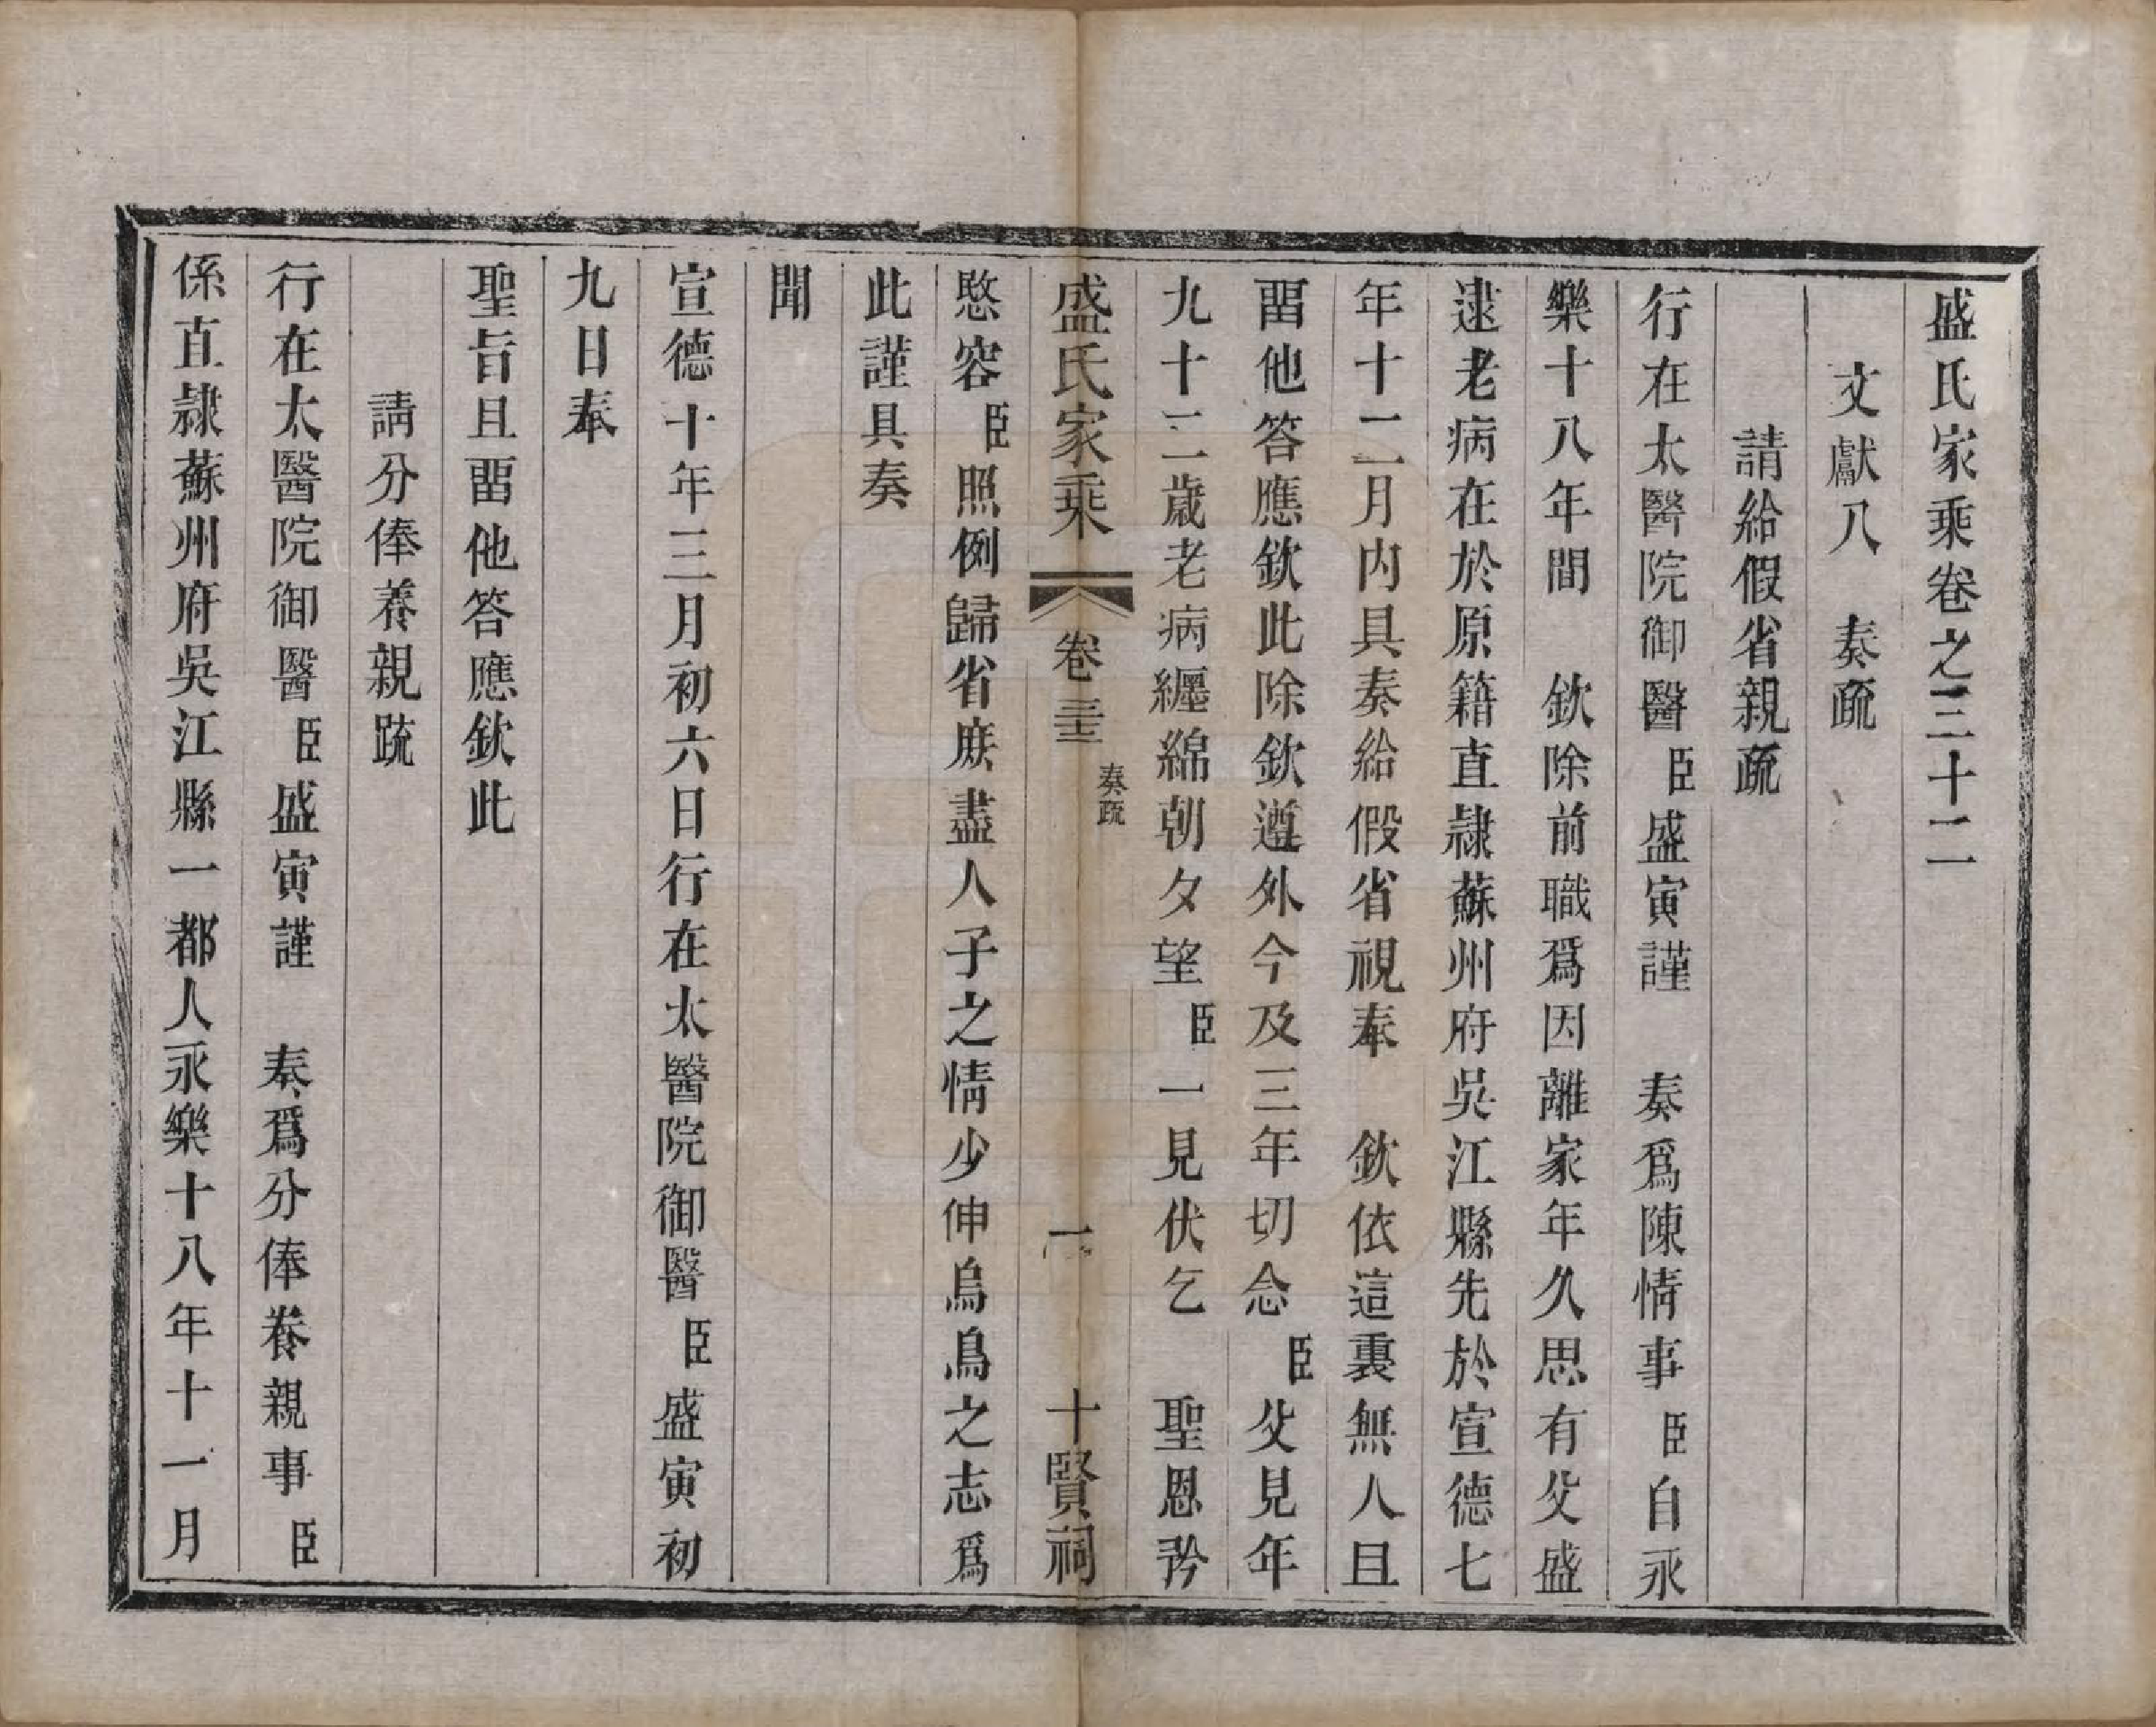 盛氏家乘卷之三十二
文獻八　奏疏
請給假省親疏
行在太醫院御醫臣盛寅謹　奏爲陳情事臣自永
樂十八年間　欽除前職爲因離家年久思有父盛
逮老病在於原籍直隷蘇州府吳江縣先於宣德七
年十二月內具奏給假省視奉　欽依這裏無人且
畱他答應欽此除欽遵外今及三年切念臣父見年
九十二歲老病纒綿朝夕望臣一見伏乞　聖恩矜
愍容臣照例歸省庶盡人子之情少伸烏鳥之志爲
此謹具奏
聞
宣德十年三月初六日行在太醫院御醫臣盛寅初
九日奉
聖旨且畱他答應欽此
請分俸養親疏
行在太醫院御醫臣盛寅謹　奏爲分俸養親事臣
係直隷蘇州府吳江縣一都人永樂十八年十一月
盛氏家乘　卷三十二　奏疏　一　十賢祠